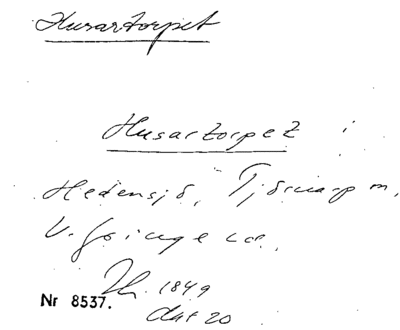 Husartorpet
Husartorpet i
Hedensjö, Tjörnarp m,
V. Göinge
Hr. 1849
Nr 8537.
dat 20